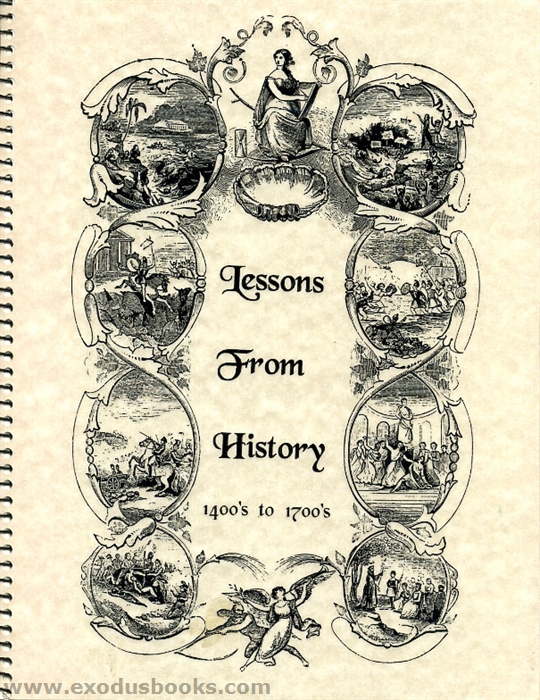 Lessons
From
History
1400's to 1700's
www.exodusbooks.com